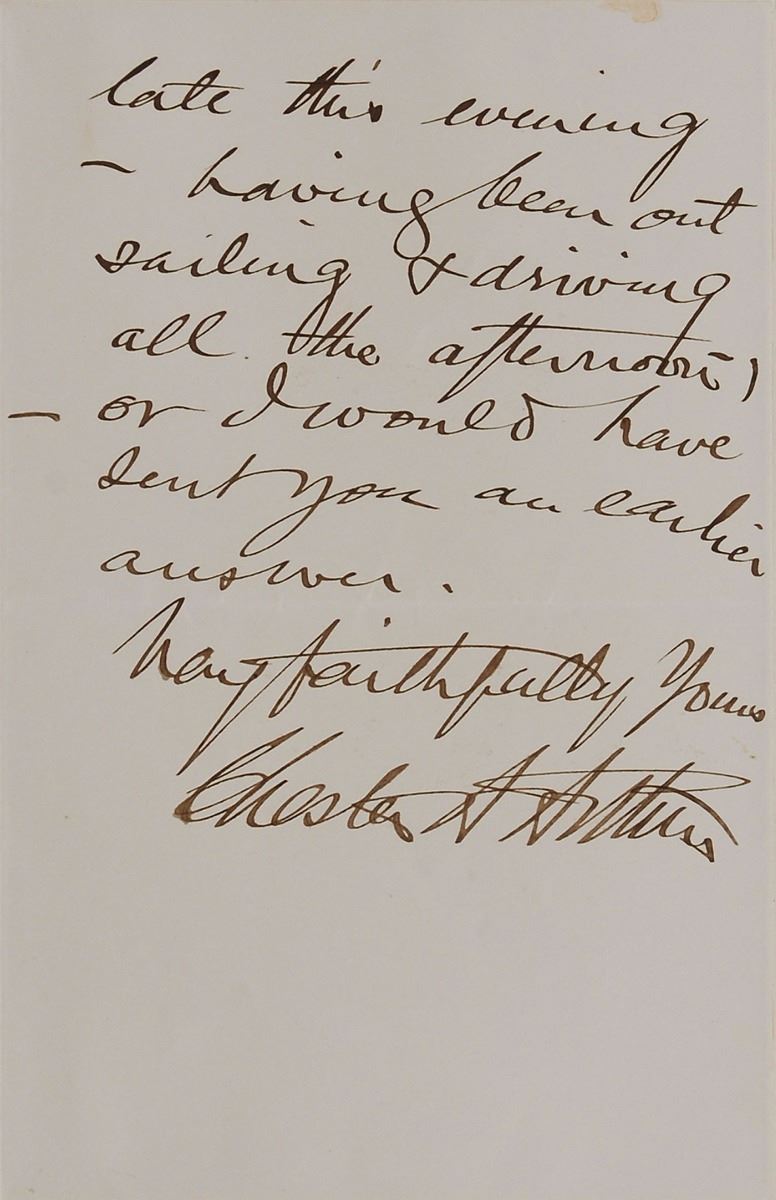 late this evening
– having been out
sailing & driving
all the afternoon)
– or I would have
sent you an earlier
answer.
Very faithfully Yours
Chester A Arthur